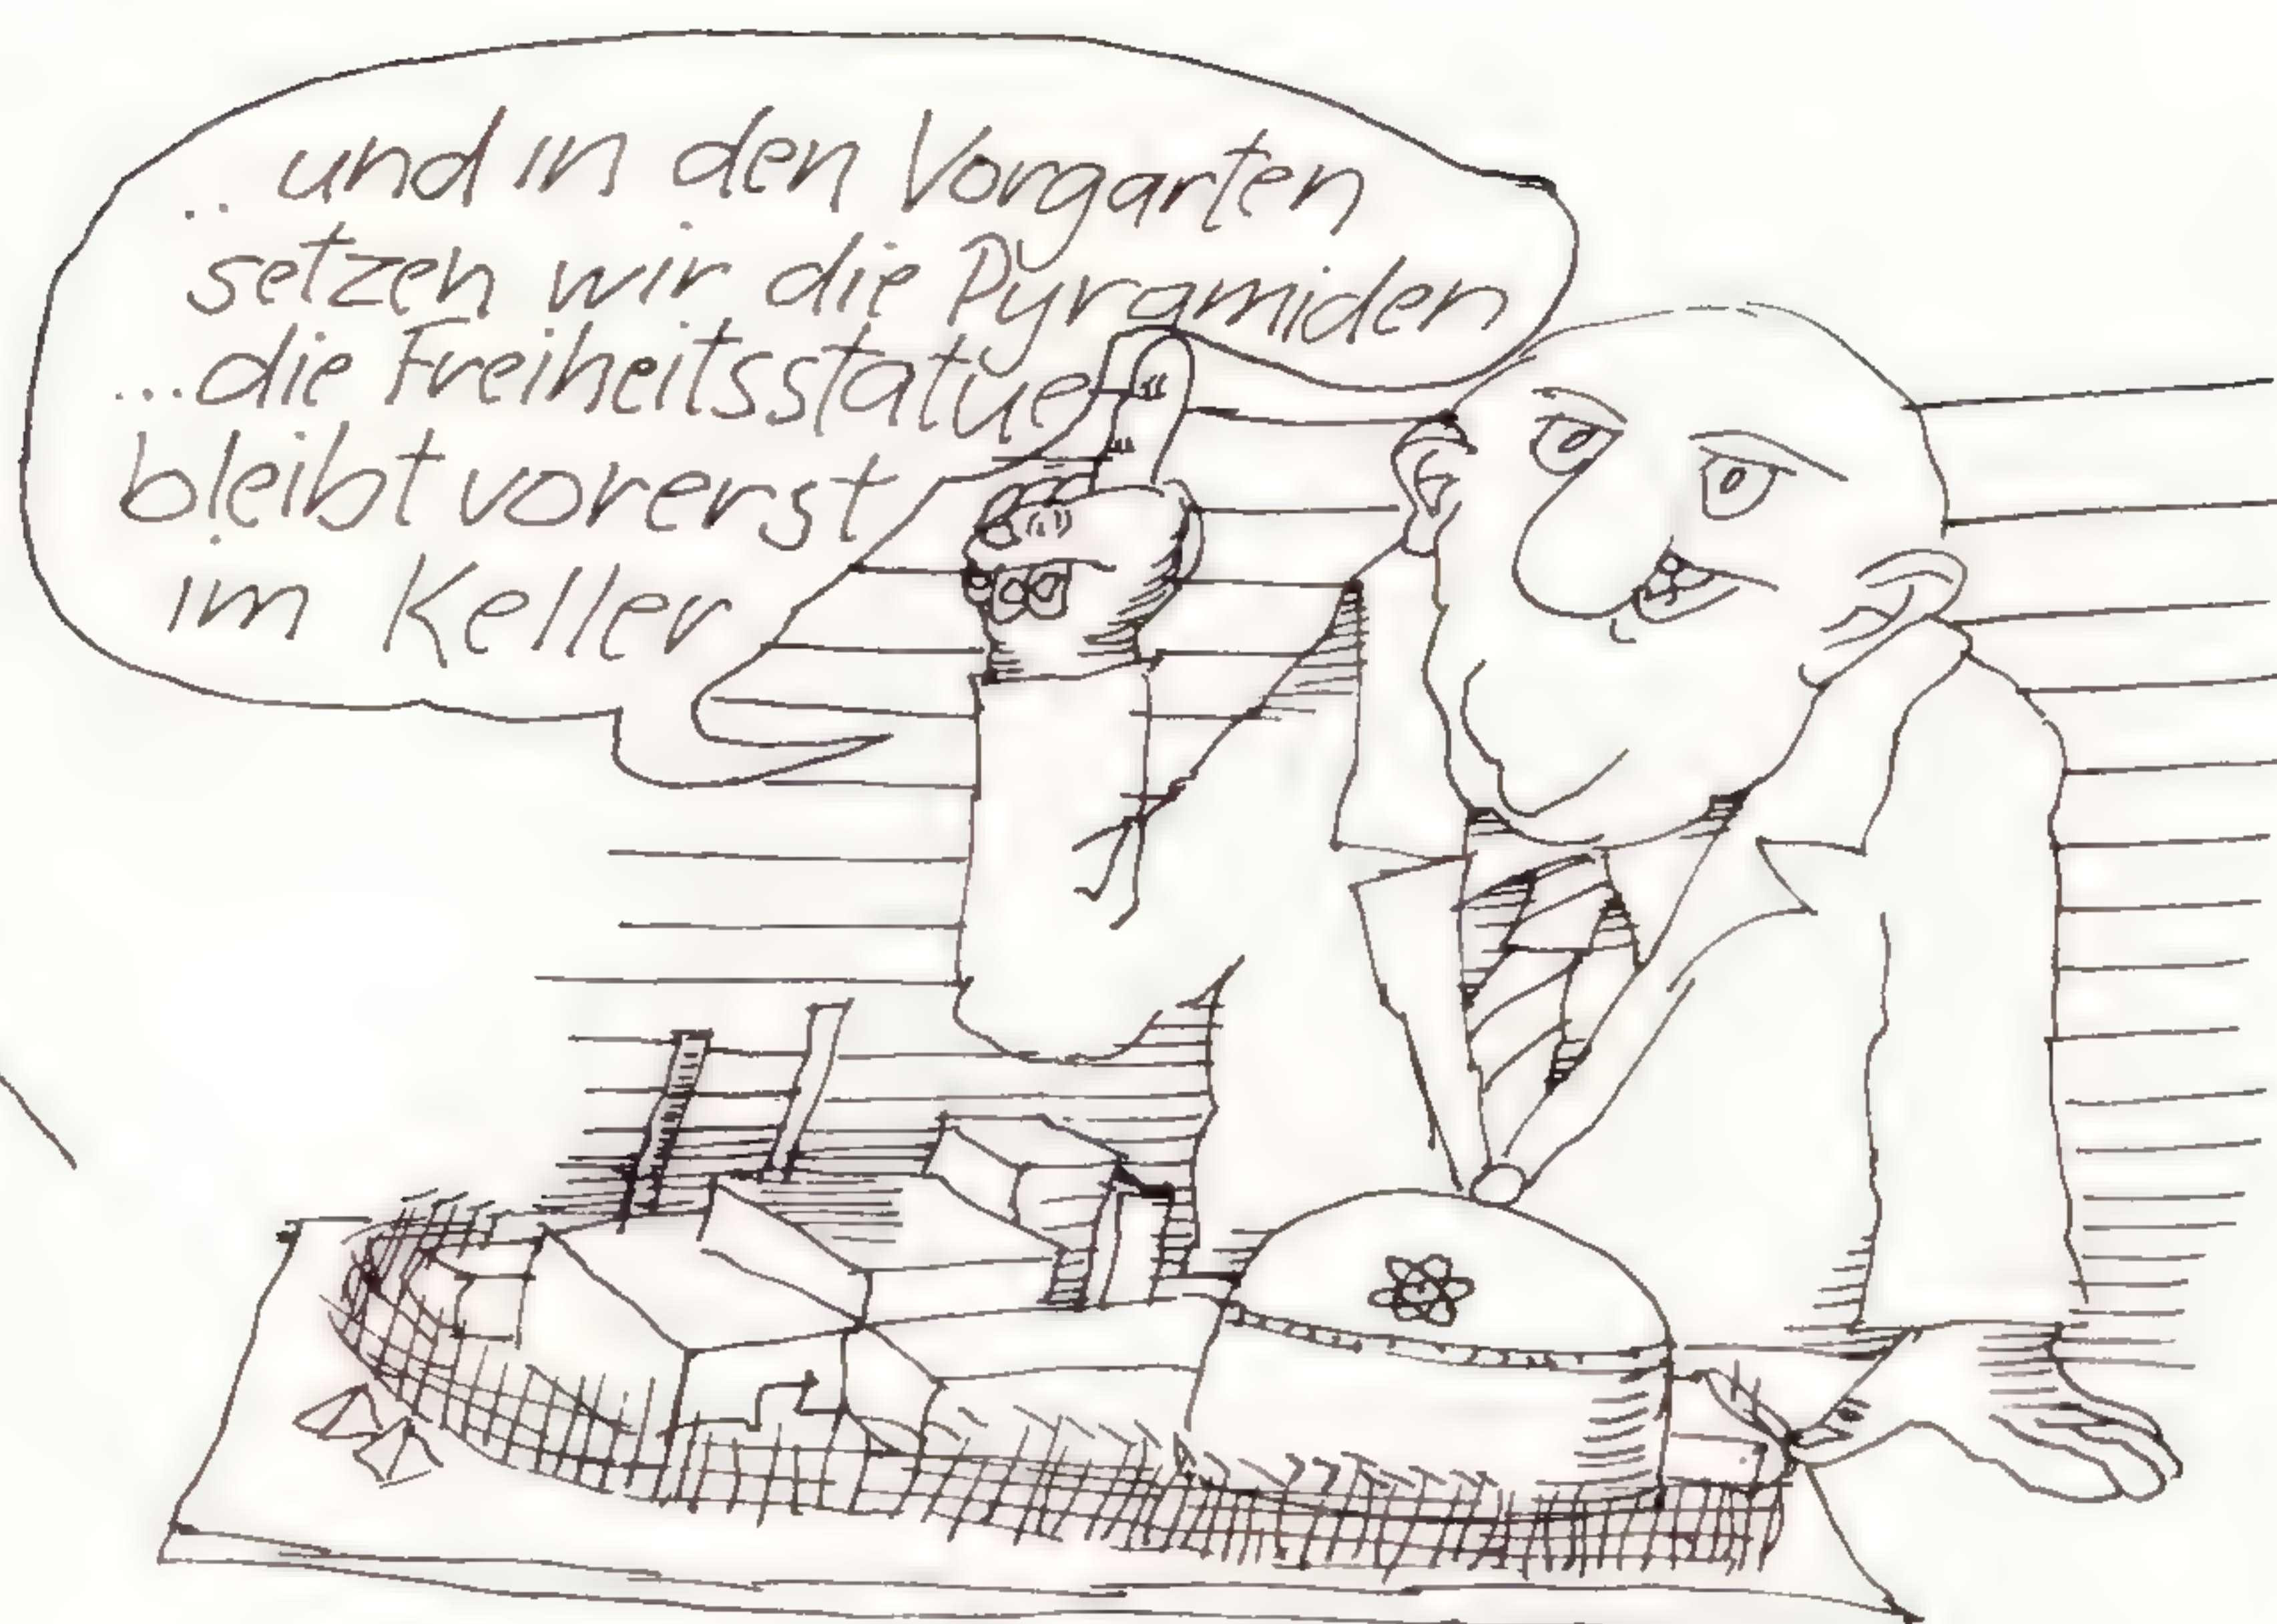 .. und in den Vorgarten
setzen wir die Pyramiden
...die Freiheitsstatue
bleibt vorerst
im Keller